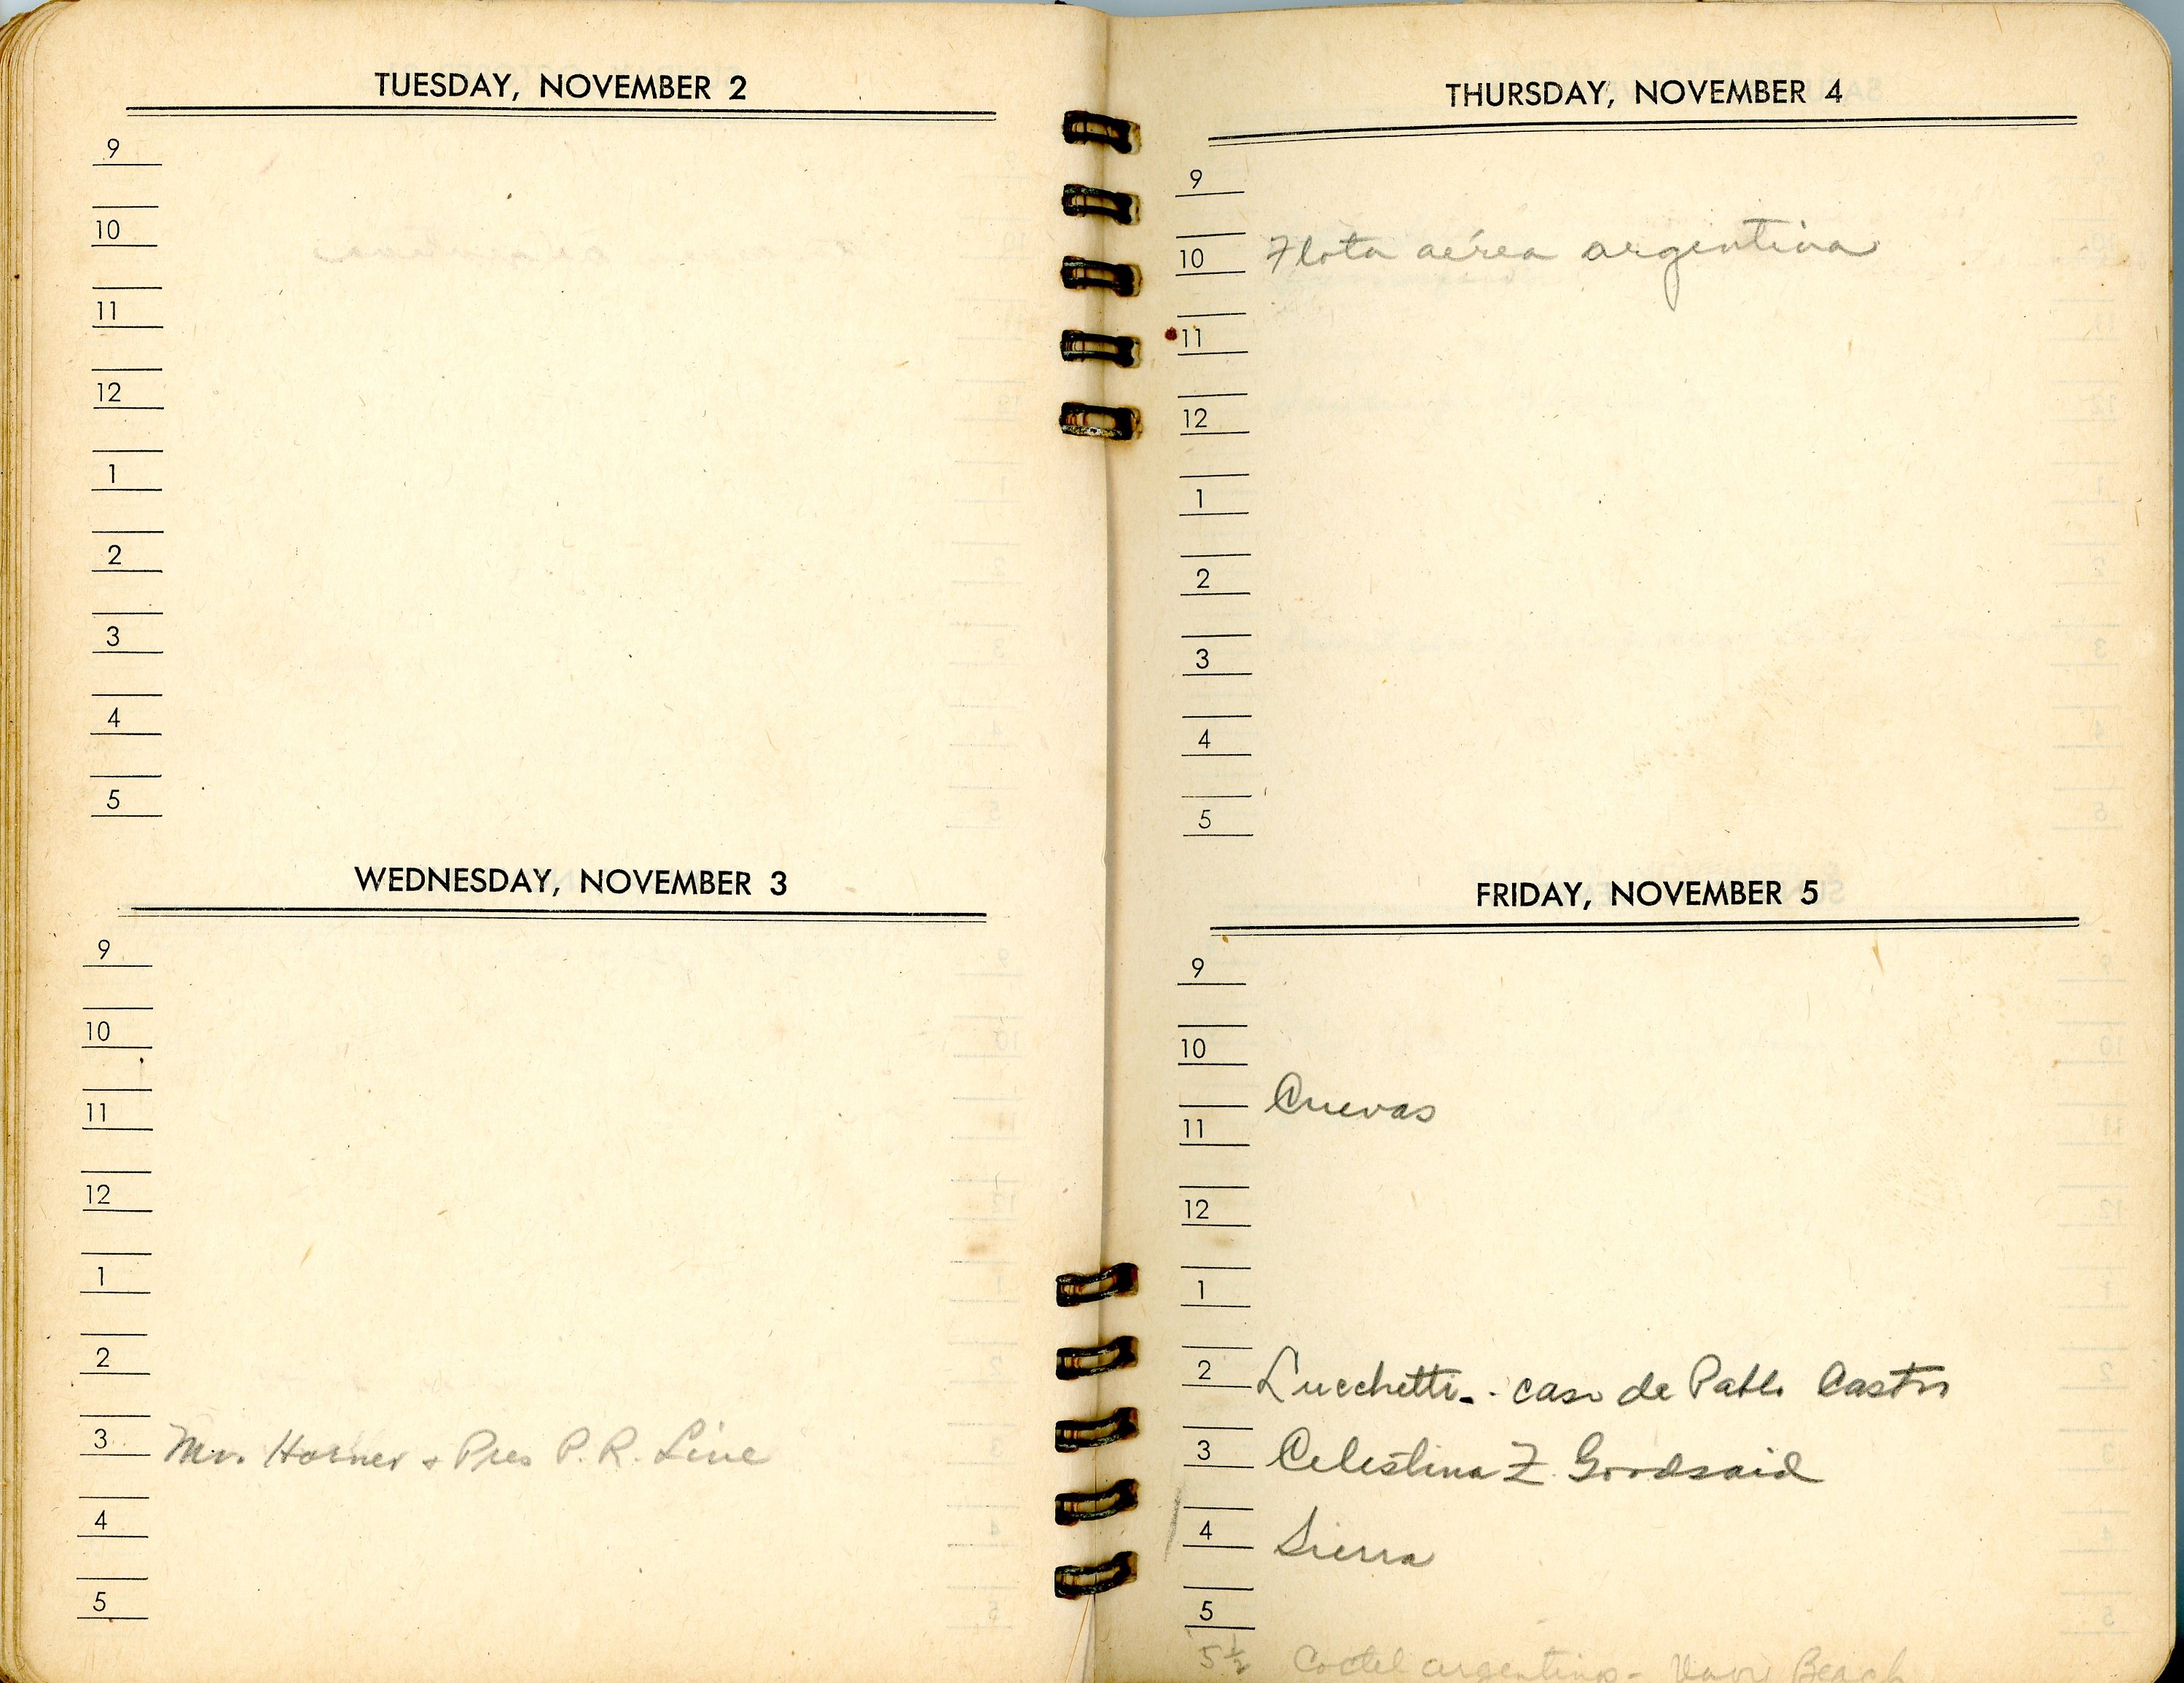 TUESDAY, NOVEMBER 2
9
10
11
12
1
2
3
4
5
WEDNESDAY, NOVEMBER 3
9
10
11
12
1
2
3 Mr. Horner & Pres P. R. Line
4
5
THURSDAY, NOVEMBER 4
9
10 Flota aérea argentina
11
12
1
2
3
4
5
FRIDAY, NOVEMBER 5
9
10
Cuevas
11
12
1
2 Lucchetti - caso de Pablo Castro
3 Celestina Z. Goodsaid
4 Sierra
5
5½ Coctel argentino - Beach